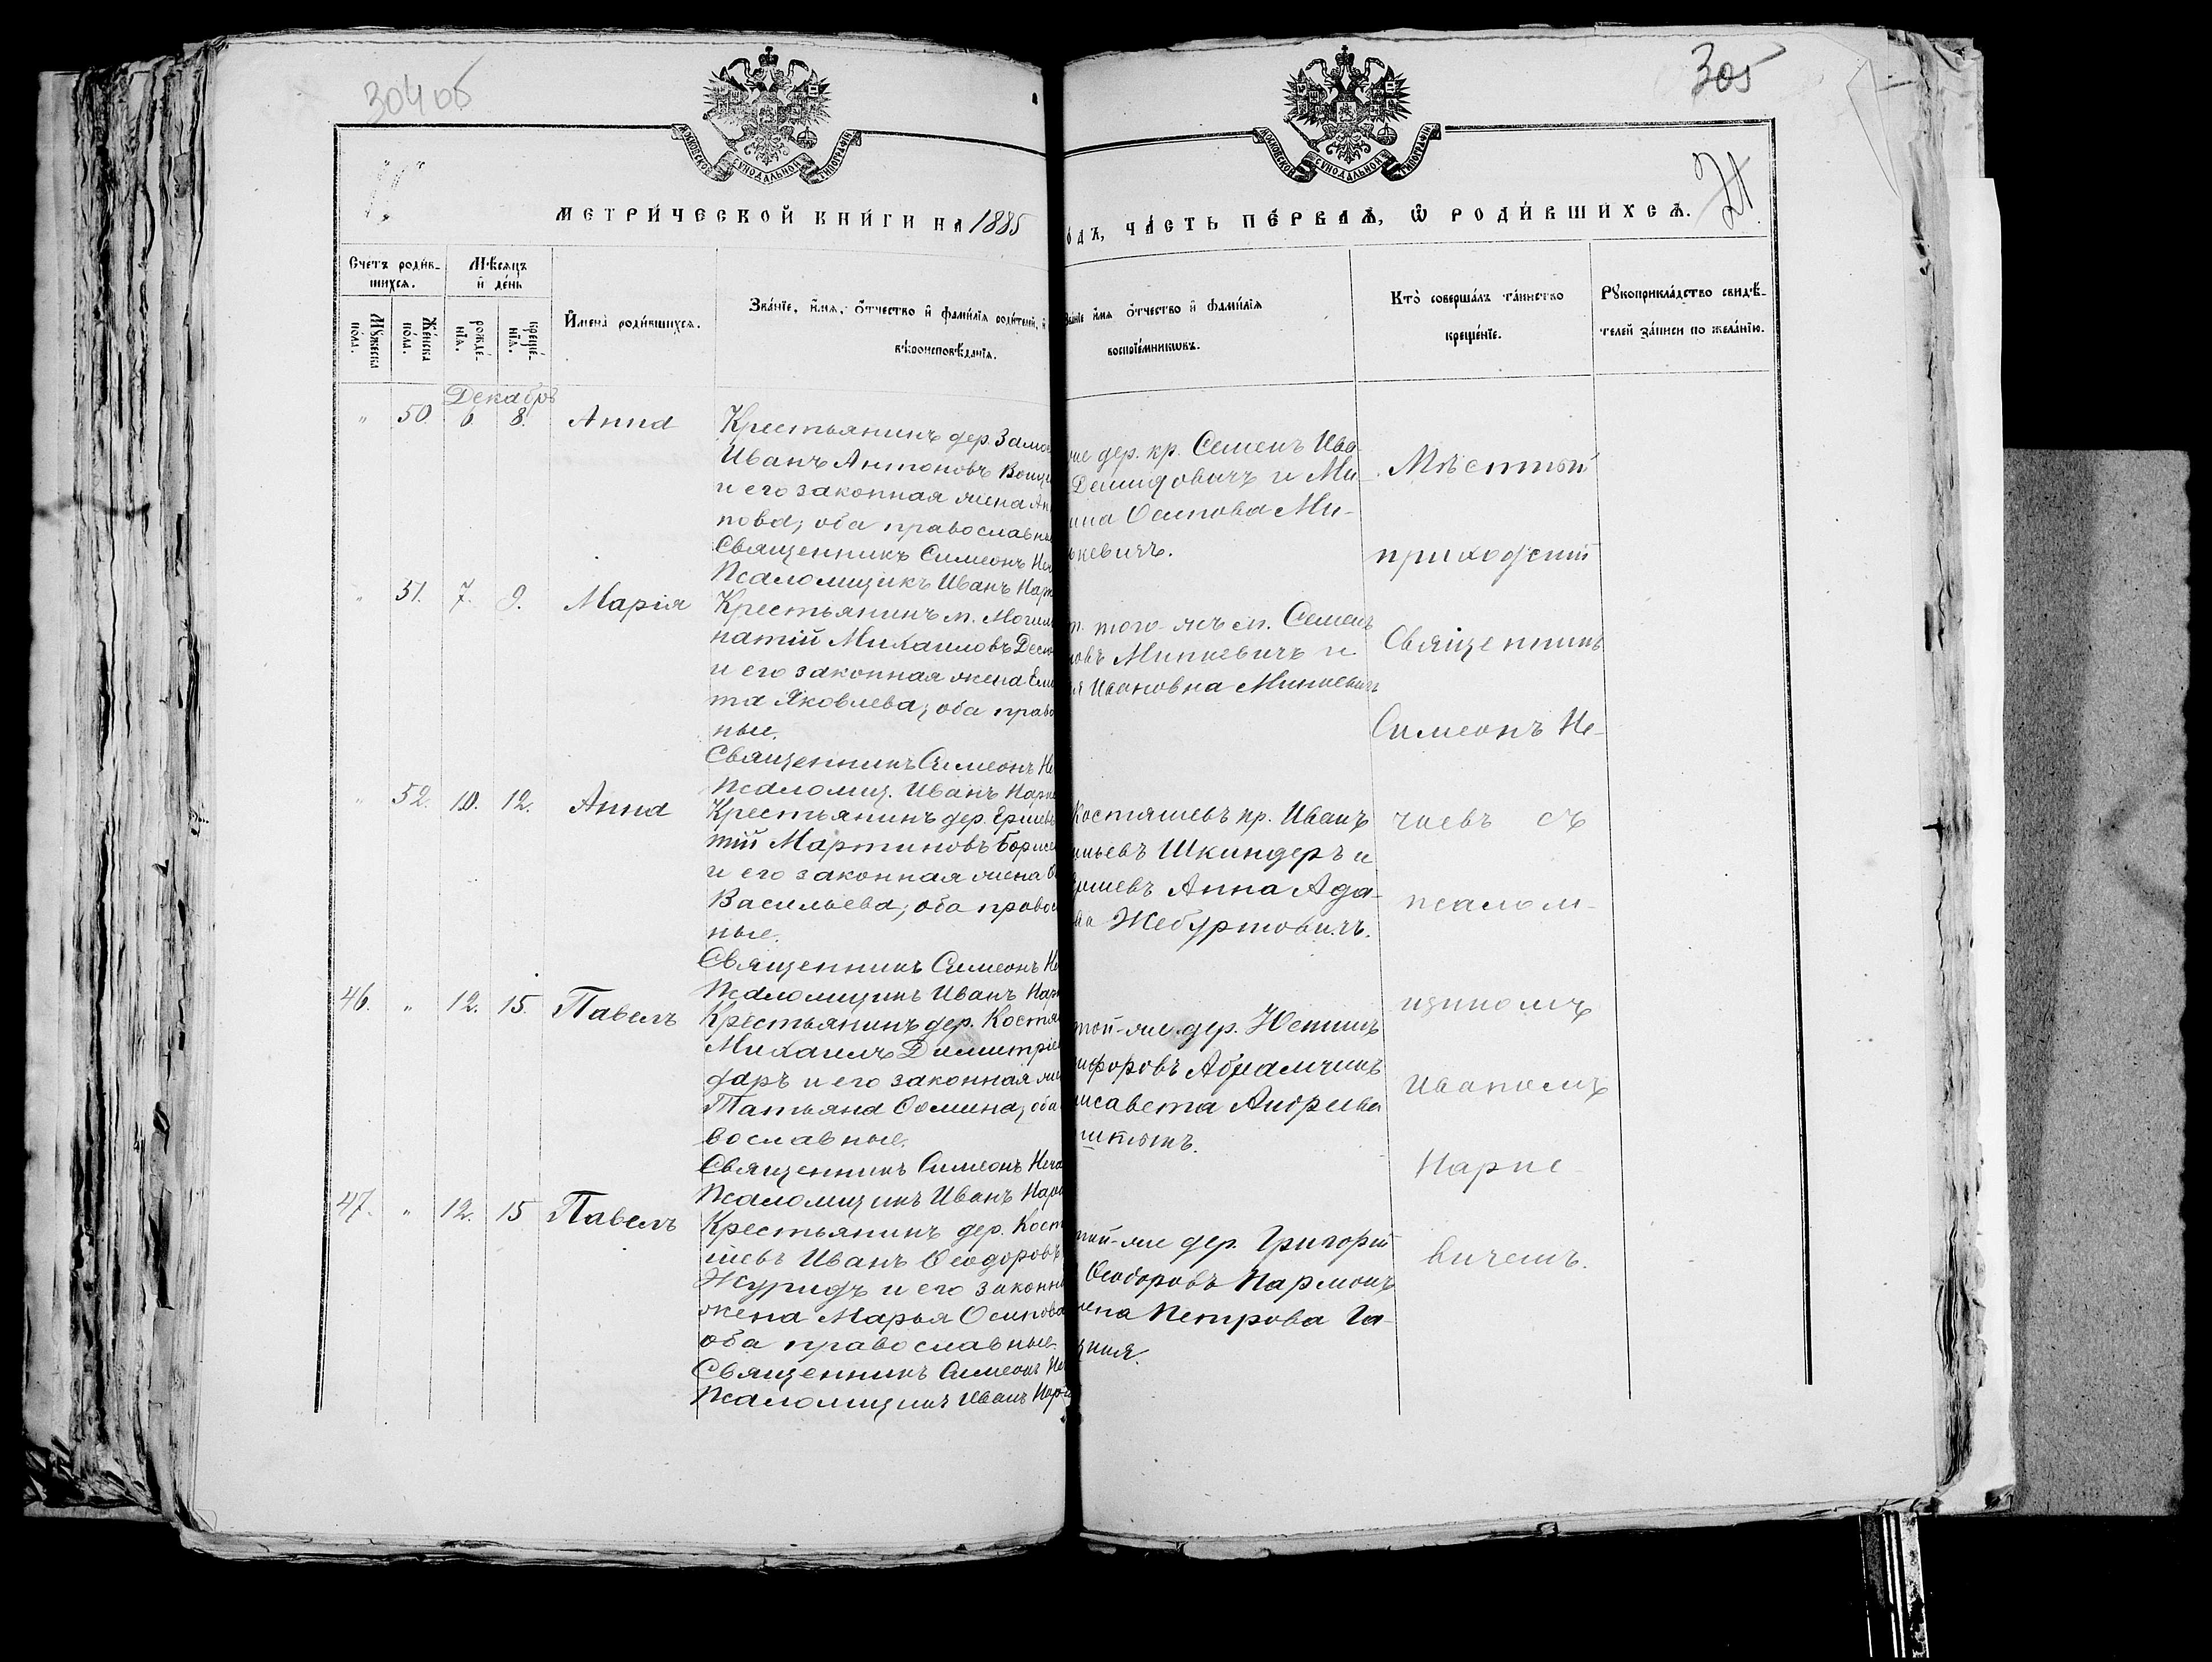 304 об
305
МОСКОВСКОЙ СѴНОДАЛЬНОЙ ТИПОГРАФІИ
МОСКОВСКОЙ СѴНОДАЛЬНОЙ ТИПОГРАФІИ
21
МЕТРИ́ЧЕСКОЙ КНИ́ГИ НА 1885
ОДЪ, ЧА́СТЬ ПЕ́РВАѦ, Ѽ РОДИ́ВШИХСѦ.
Счетъ роди́в-
шихсѧ.
Мꙋжеска пола.
Же́нска по́ла.
Мѣсѧцъ
и де́нь
рожде́-
нїѧ.
креще́-
нїѧ.
И҆мена̀ роди́вшихсѧ.
Зва́нїе, и҆́мѧ, ѻ҆́тчество и҆ фами́лїѧ роди́телей, и҆
вѣроисповѣ́данїѧ.
Зва́нїе и҆́мѧ ѻ҆́тчество и҆ фами́лїѧ
воспрїе́мникѡвъ.
Кто̀ соверша́лъ та́инство
креще́нїе.
Рꙋкоприкла́дство свидѣ́-
телей за́писи по жела́нїю.
Декабрь
" 50 6. 8. Анна
Крестьянинъ дер. Замо
Иванъ Антоновъ
и его законная жена Ан
пова; оба православны
Священникъ Симеонъ Неч
Псаломщикъ Иванъ Нарк
же дер. кр. Семенъ Ива
Демидовичъ и Ми-
ина Осипова Ми-
ькевичъ.
" 51. 7. 9. Марія
Крестьянинъ м. Могил
натій Михаиловъ Десю
и его законная жена Ели
та Яковлева; оба право
ные.
Священникъ Симеонъ Не
Псаломщ. Иванъ Нарке
п. того-жъ м. Семенъ
новъ Минкевичъ и
ія Ивановна Минкевичъ
" 52. 10. 12. Анна
Крестьянинъ дер. Ершевъ
тій Мартиновъ Борисе
и его законная жена
Васильева; оба правос
ные.
Священникъ Симеонъ Не
Псаломщикъ Иванъ Нарк
Костяшевъ кр. Иванъ
ильевъ Шкиндеръ и
ршевъ Анна Ада-
ва Жебуртовичъ.
46. " 12. 15. Павелъ
Крестьянинъ дер. Костя
Михаилъ Димитріе
даръ и его законная же
Татьяна Ѳомина; оба
вославные.
Священникъ Симеонъ Неча
Псаломщикъ Иванъ Нарк
той-же дер. Устинъ
ифоровъ Абрамчикъ
лисавета Андреева
шкътъ.
47. " 12. 15 Павелъ
Крестьянинъ дер. Кост
шевъ Иванъ Ѳеодоровъ
Журидъ и его законн
жена Марья Осипова
оба православные.
Священникъ Симеонъ Не
Псаломщикъ Иванъ Нарк
той-же дер. Григорій
Ѳеодоровъ Пармонъ
лена Петрова Га-
Мѣстный
приходскій
Священникъ
Симеонъ Не-
чаевъ съ
псалом-
щикомъ
Иваномъ
Нарке-
вичемъ.